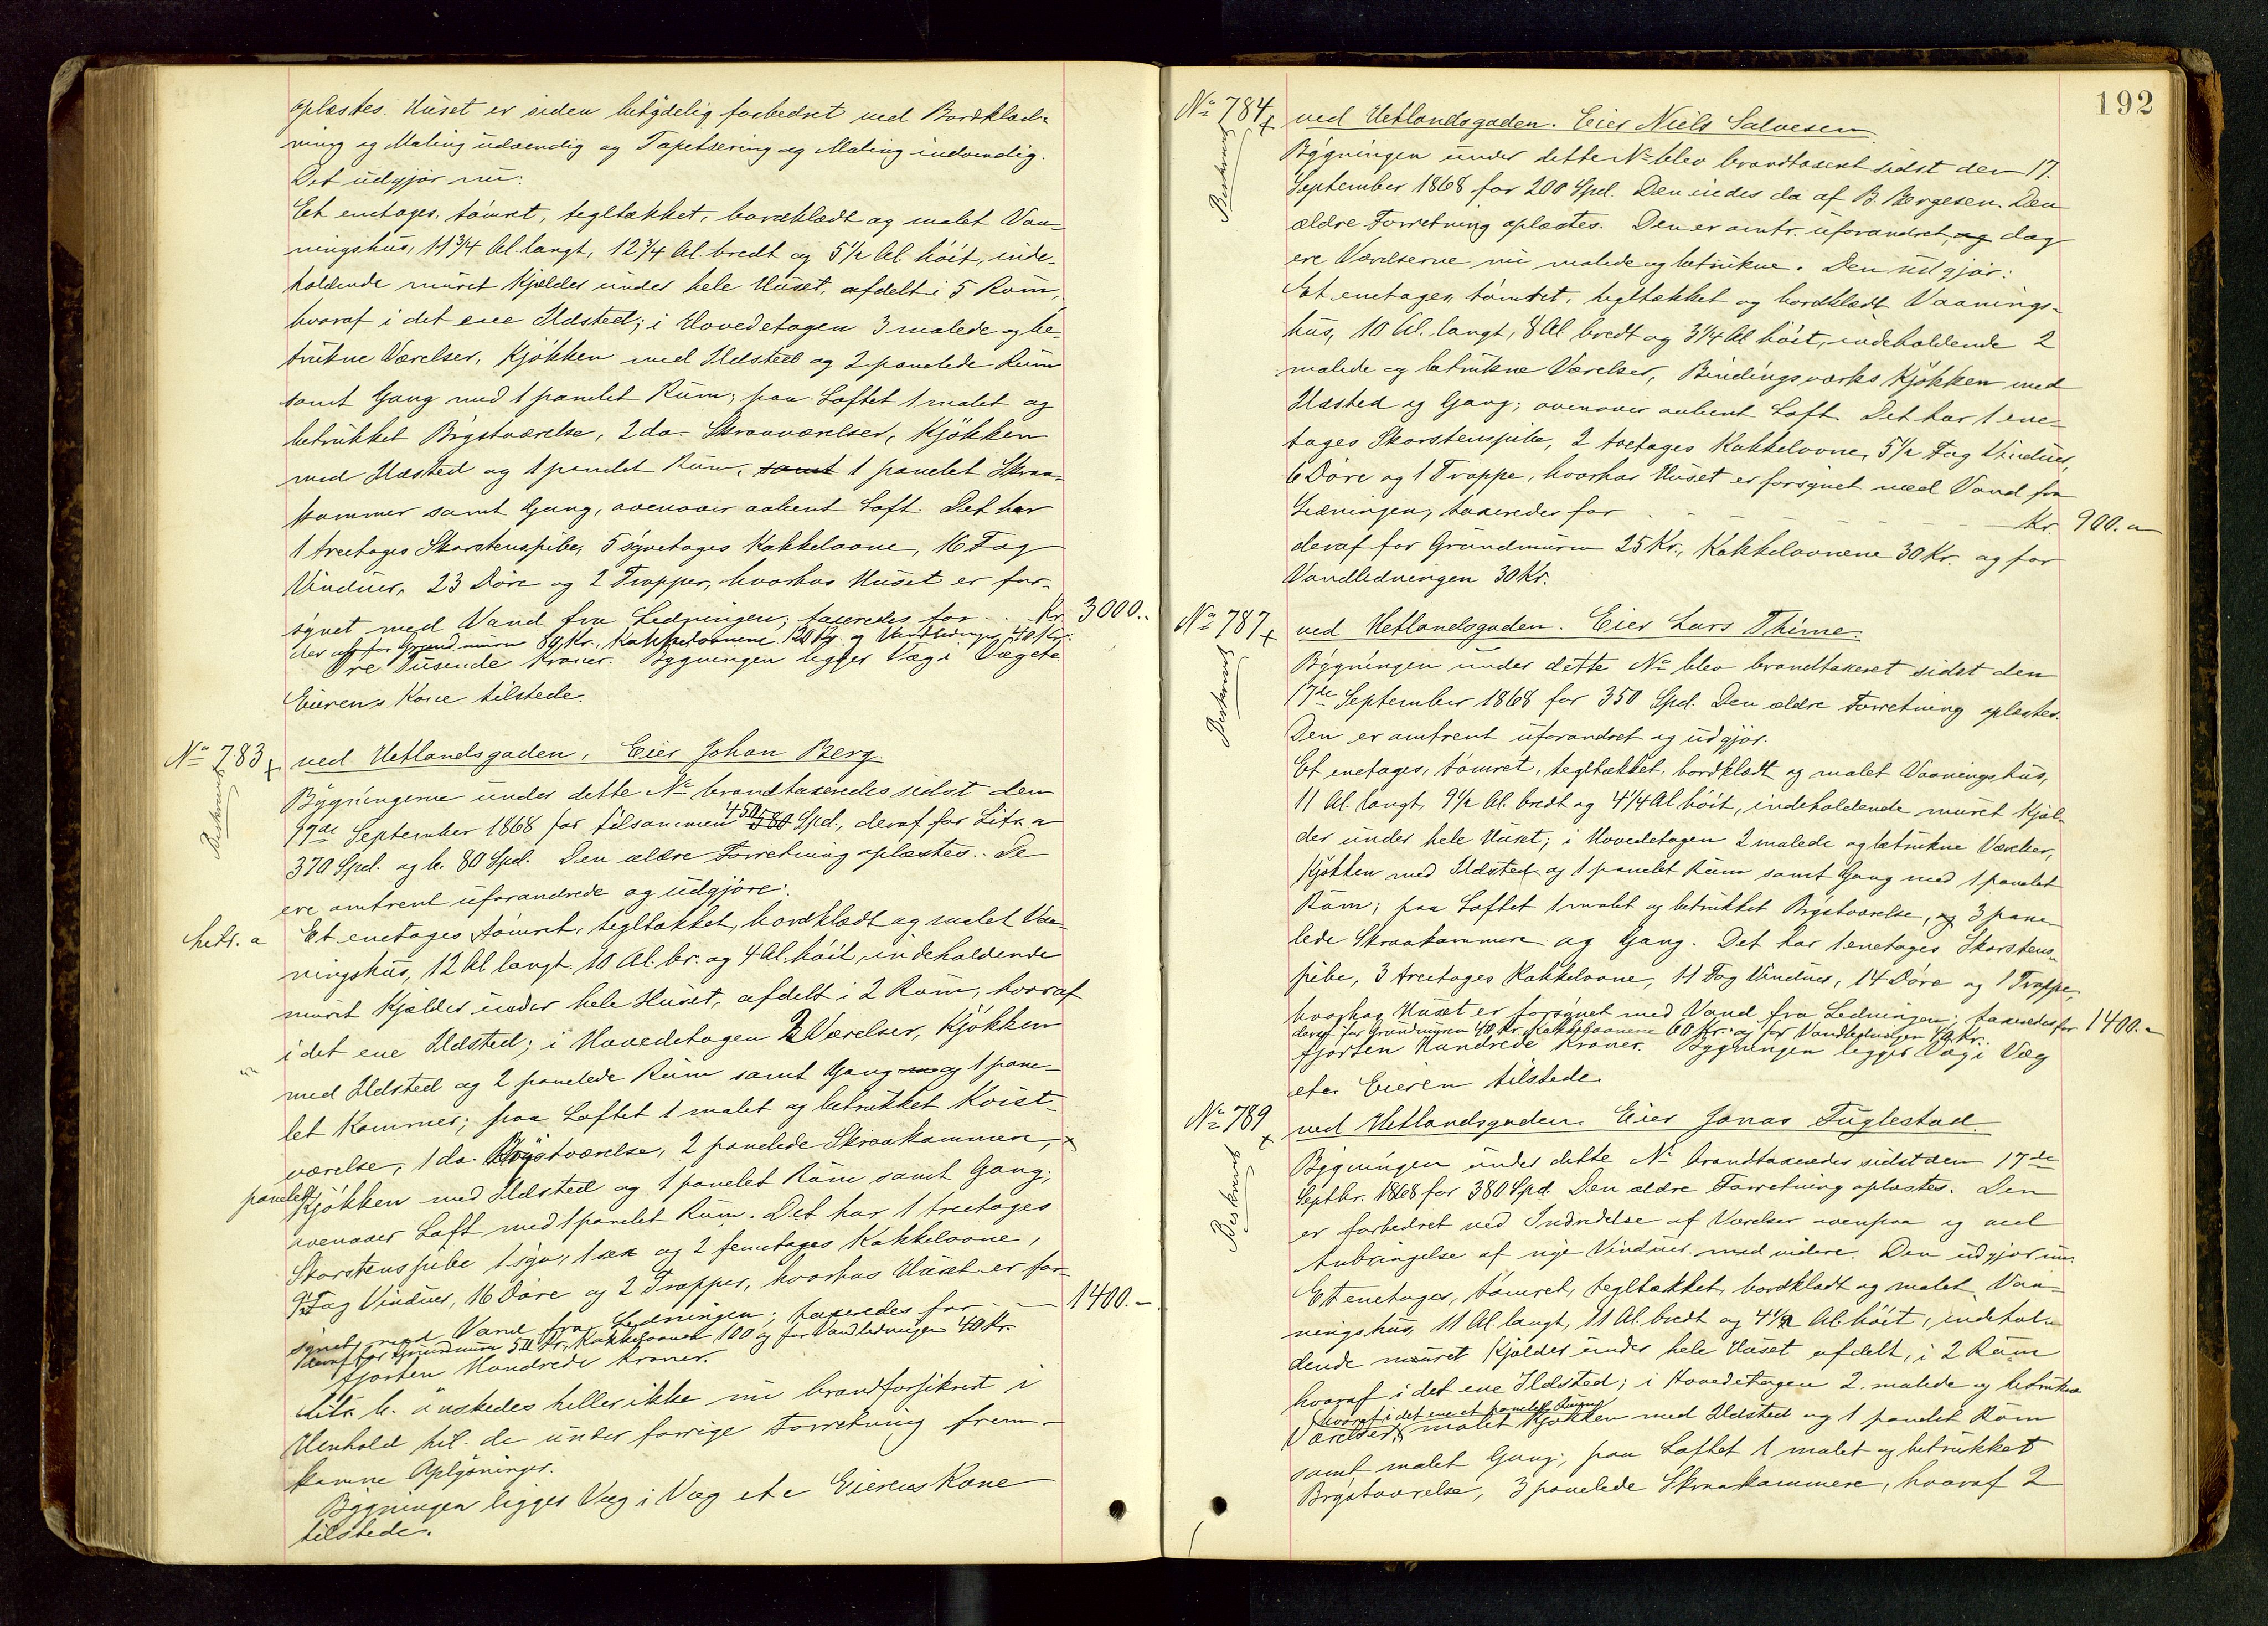 oplæstes. Huset er siden betydelig forbedret ved Bordklæd-
ning og Maling udvendig og Tapetsering og Maling indvendig.
Det udgjør nu:
Et enetages, tømret, tegltækket, bordklædt og malet Vaa-
ningshus, 11 3/4 Al. langt, 12 3/4 Al. bredt og 5 1/2 Al. høit, inde-
holdende muret Kjælder under hele Huset, afdelt i 5 Rum,
hvoraf i det ene Ildsted; i Hovedetagen 3 malede og be-
trukne Værelser, Kjøkken med Ildsted og 2 panelede Rum
samt Gang med 1 panelet Rum; paa Loftet 1 malet og
betrukket Brystværelse, 2 do. Skraaværelser, Kjøkken
med Ildsted og 1 panelet Rum, samt 1 panelet Skraa-
kammer samt Gang, ovenover aabent Loft. Det har
1 treetages Skorstenspibe, 5 syvetages Kakkelovne, 16 Fag
Vinduer, 23 Døre og 2 Trapper, hvorhos Huset er for-
synet med Vand fra Ledningen; taxeredes for - - Kr. 3000..
deraf for Grundmuren 80 Kr., Kakkelovnene 120 Kr. og Vandledningen 40 Kr.
Tre Tusende Kroner. Bygningen ligger Væg i Væg etc.
Eierens Kone tilstede.
No 783 ved Hetlandsgaden. Eier Johan Berg.
Beskrevet
Bygningerne under dette No brandtaxeredes sidst den
17de September 1868 for tilsammen 450 580 Spd., deraf for Litr. a
370 Spd. og b. 80 Spd. Den ældre Forretning oplæstes. De
ere omtrent uforandrede og udgjøre:
Litr. a Et enetages, tømret, tegltækket, bordklædt og malet Vaa-
ningshus, 12 Al. langt, 10 Al. br. og 4 Al. høit, indeholdende
muret Kjælder under hele Huset, afdelt i 2 Rum, hvoraf
i det ene Ildsted; i Hovedetagen 2 Værelser, Kjøkken
med Ildsted og 2 panelede Rum samt Gang og 1 pane-
let Kammer; paa Loftet 1 malet og betrukket Kvist-
værelse, 1 do. Brystværelse, 2 panelede Skraakammere,
panelet Kjøkken med Ildsted og 1 panelet Rum samt Gang;
ovenover Loft med 1 panelet Rum. Det har 1 treetages
Skorstenspibe 1 syv, 1 sex og 2 femetages Kakkelovne,
9 Fag Vinduer, 16 Døre og 2 Trapper, hvorhos Huset er for-
synet med Vand fra Ledningen; taxeredes for - - 1400.-
deraf for Grundmuren 50 Kr., Kakkelovnene 100 og for Vandledningen 40 Kr.
fjorten Hundrede Kroner.
Litr. b. ønskedes heller ikke nu brandforsikret i
Henhold til de under forrige Forretning frem-
komne Oplysninger.
Bygningen ligger Væg i Væg etc Eierens Kone
tilstede.
192
No 784 ved Hetlandsgaden. Eier Niels Salvesen
Beskrevet
Bygningen under dette No blev brandtaxeret sidst den 17.
September 1868 for 200 Spd. Den eiedes da af B. Børgesen. Den
ældre Forretning oplæstes. Den er omtr. uforandret, og dog
ere Værelserne nu malede og betrukne. Den udgjør:
Et enetages, tømret, tegltækket og bordklædt Vaanings-
hus, 10 Al. langt, 8 Al. bredt og 3 1/4 Al. høit, indeholdende 2
malede og betrukne Værelser, Bindingsværks Kjøkken med
Ildsted og Gang; ovenover aabent Loft. Det har 1 ene-
tages Skorstenspibe, 2 toetages Kakkelovne, 5 1/2 Fag Vinduer,
6 Døre og 1 Trappe, hvorhos Huset er forsynet med Vand fra
Ledningen, taxeredes for - - - Kr. 900.-
deraf for Grundmuren 25 Kr., Kakkelovnene 30 Kr. og for
Vandledningen 30 Kr.
No 787 ved Hetlandsgaden. Eier Lars Thime.
Beskrevet
Bygningen under dette No blev brandtaxeret sidst den
17de September 1868 for 350 Spd. Den ældre Forretning oplæstes.
Den er omtrent uforandret og udgjør.
Et enetages, tømret, tegltækket, bordklædt og malet Vaaningshus,
11 Al. langt, 9 1/2 Al. bredt og 4 1/4 Al. høit, indeholdende muret Kjæl-
der under hele Huset; i Hovedetagen 2 malede og betrukne Værelser,
Kjøkken med Ildsted og 1 panelet Rum samt Gang med 1 panelet
Rum; paa Loftet 1 malet og betrukket Brystværelse, og 3 pane-
lede Skraakammere og Gang. Det har 1 enetages Skorstens-
pibe, 3 treetages Kakkelovne, 11 Fag Vinduer, 14 Døre og 1 Trappe,
hvorhos Huset er forsynet med Vand fra Ledningen; taxeredes for 1400.-
deraf for Grundmuren 40 Kr. Kakkelovnene 60 Kr. og for Vandledningen 40 Kr.
fjorten Hundrede Kroner. Bygningen ligger Væg i Væg
etc. Eieren tilstede.
No 789 ved Hetlandsgaden. Eier Jonas Fuglestad.
Beskrevet
Bygningen under dette No brandtaxeredes sidst den 17de
Septbr. 1868 for 380 Spd. Den ældre Forretning oplæstes. Den
er forbedret ved Indredelse af Værelser ovenpaa og ved
Anbringelse af nye Vinduer med videre. Den udgjør nu:
Et enetages, tømret, tegltækket, bordklædt og malet Vaa-
ningshus, 11 Al. langt, 11 Al. bredt og 4 1/2 Al. høit, indehol-
dende muret Kjælder under hele Huset afdelt i 2 Rum
hvoraf i det ene Ildsted; i Hovedetagen 2 malede og betrukne
hvoraf i det ene et panelet Rum
Værelser, malet Kjøkken med Ildsted og 1 panelet Rum
samt malet Gang; paa Loftet 1 malet og betrukket
Brystværelse, 3 panelede Skraakammere, hvoraf 2